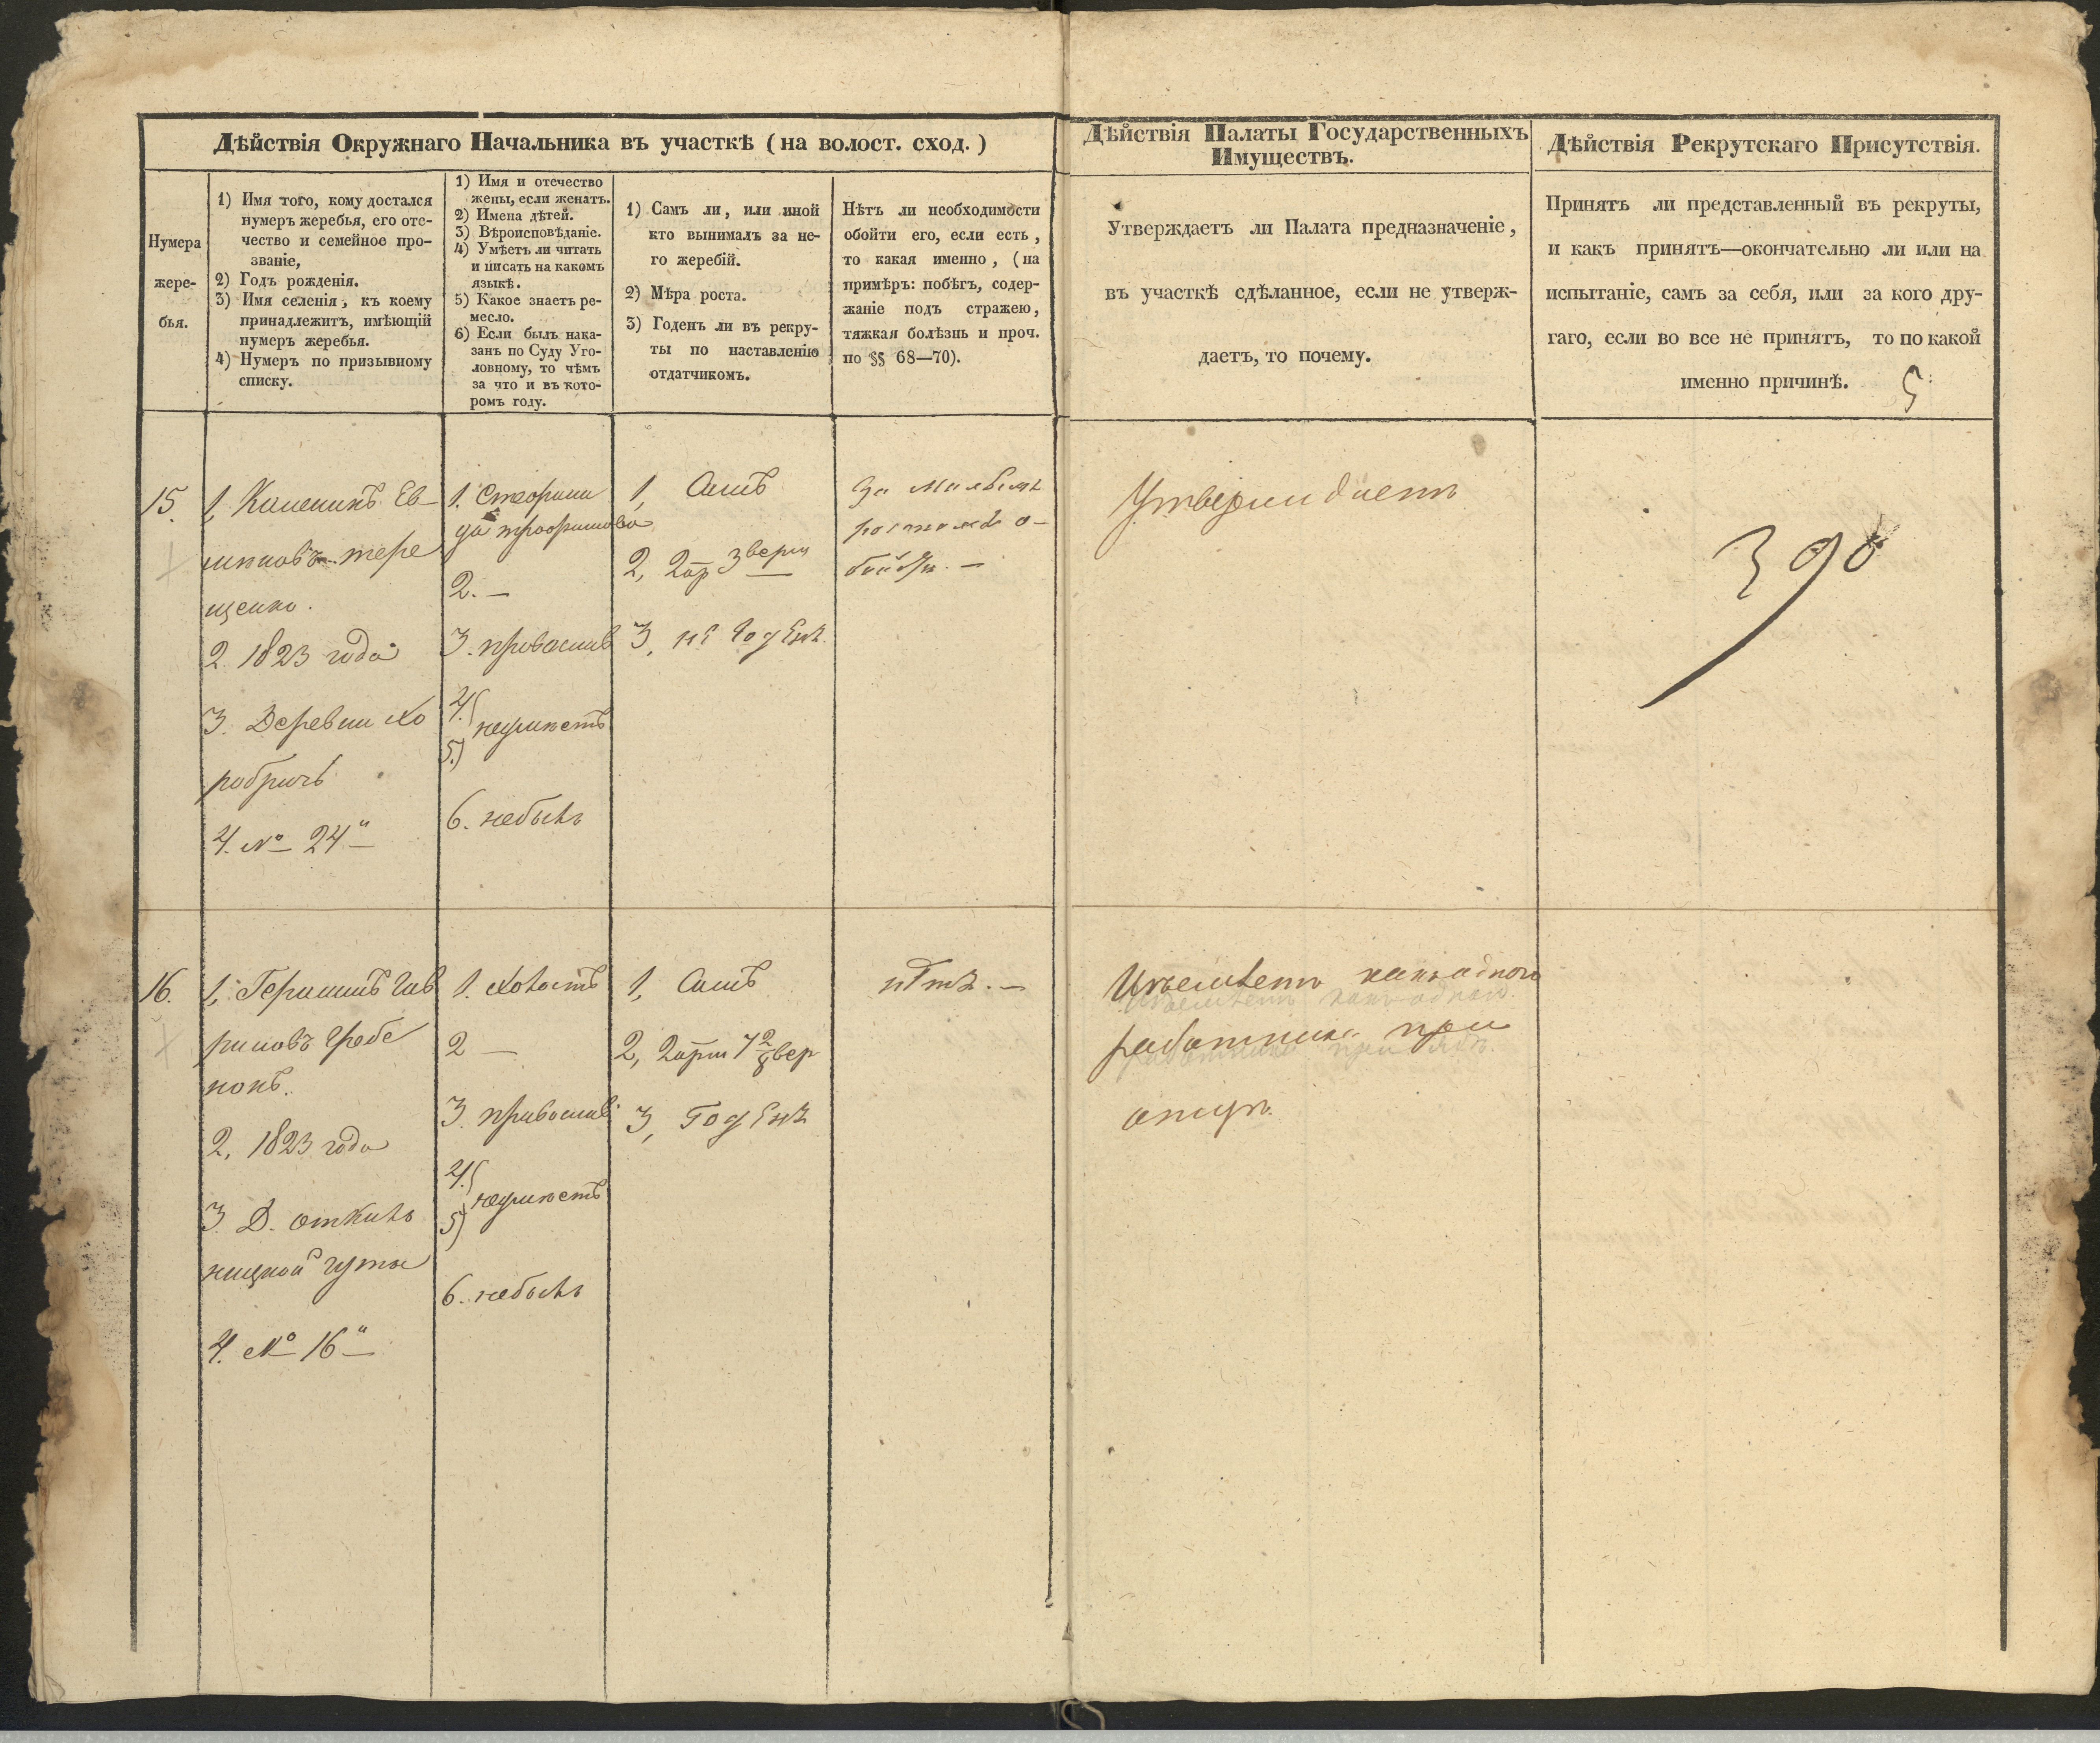 Дѣйствія Окружнаго Начальника въ участкѣ (на волост. сход.)
Нумера
жере-
бья.
1) Имя того, кому достался
нумеръ жеребья, его оте-
чество и семейное про-
званіе,
2) Годъ рожденія.
3) Имя селенія, къ коему
принадлежитъ, имѣющій
нумеръ жеребья.
4) Нумеръ по призывному
списку.
1) Имя и отечество
жены, если женатъ.
2) Имена дѣтей.
3) Вѣроисповѣданіе.
4) Умѣетъ ли читать
и писать на какомъ
языкѣ.
5) Какое знаетъ ре-
месло.
6) Если былъ нака-
занъ по Суду Уго-
ловному, то чѣмъ
за что и въ кото-
ромъ году.
1) Самъ ли, или иной
кто вынималъ за не-
го жеребій.
2) Мѣра роста.
3) Годенъ ли въ рекру-
ты по наставленію
отдатчикомъ.
Нѣтъ ли необходимости
обойти его, если есть,
то какая именно, (на
примѣръ: побѣгъ, содер-
жаніе подъ стражею,
тяжкая болѣзнь и проч.
по §§ 68—70).
Дѣйствія Палаты Государственныхъ
Имуществъ.
Утверждаетъ ли Палата предназначеніе,
въ участкѣ сдѣланное, если не утверж-
даетъ, то почему.
Дѣйствія Рекрутскаго Присутствія.
Принятъ ли представленный въ рекруты,
и какъ принятъ—окончательно ли или на
испытаніе, самъ за себя, или за кого дру-
гаго, если во все не принятъ, то по какой
именно причинѣ.
5
15.
1, Каленикъ Ев-
тере
щенко.
2. 1823 года
3. Деревни Хо
робричъ
4. № 24"
1.
да трофимова
2. —
3. православ
4)
неумѣетъ
5)
6. небылъ
1, Самъ
2, 2 ар 3 верш
3, не Годенъ
За малымъ
ростомъ о-
Утверждаетъ
390
16.
1, Герасимъ Гав
риловъ Гребе
нокъ.
2, 1823 года
3. Д.
ницкой Гуты
4. № 16"
1. Холостъ
2 —
3. православ
4)
неумѣетъ
5)
6. небылъ
1, Самъ
2, 2 арш 4 2/8 вер
3, Годенъ
нѣтъ. —
какъ одного
работника при
отцѣ.